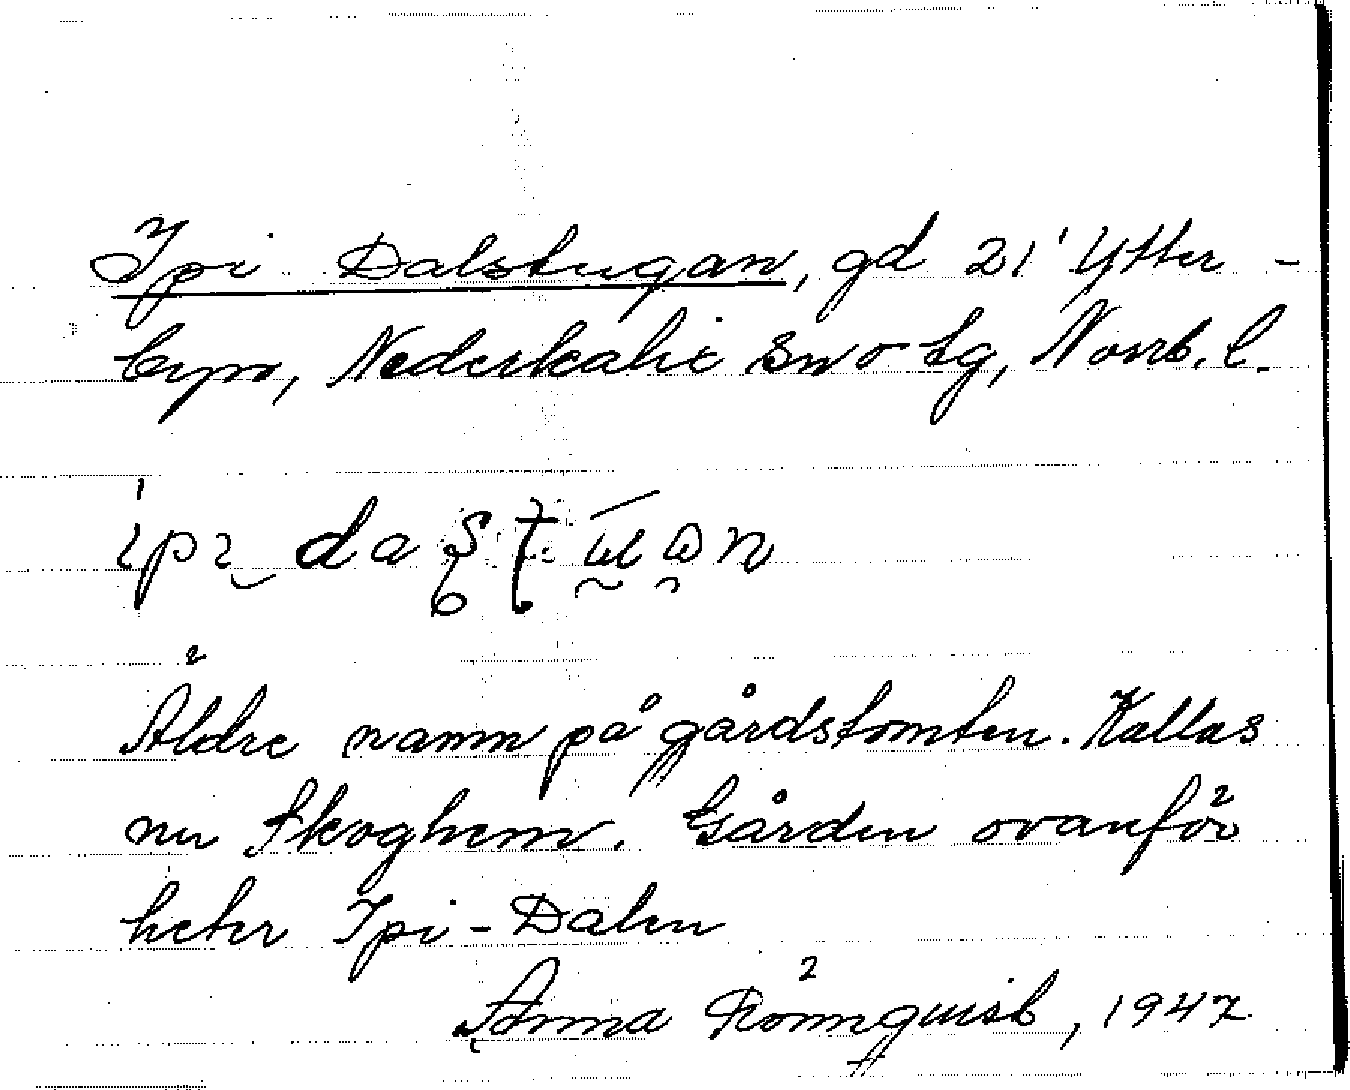 Ipi Dalstugan, gd 21' Ytter-
byn, Nederkalix sn o tg, Norrb. l.
Äldre namn på gårdstomten. Kallas
nu Skoghem. Gården ovanför
heter Ipi-Dalen
Anna Rönnquist, 1947